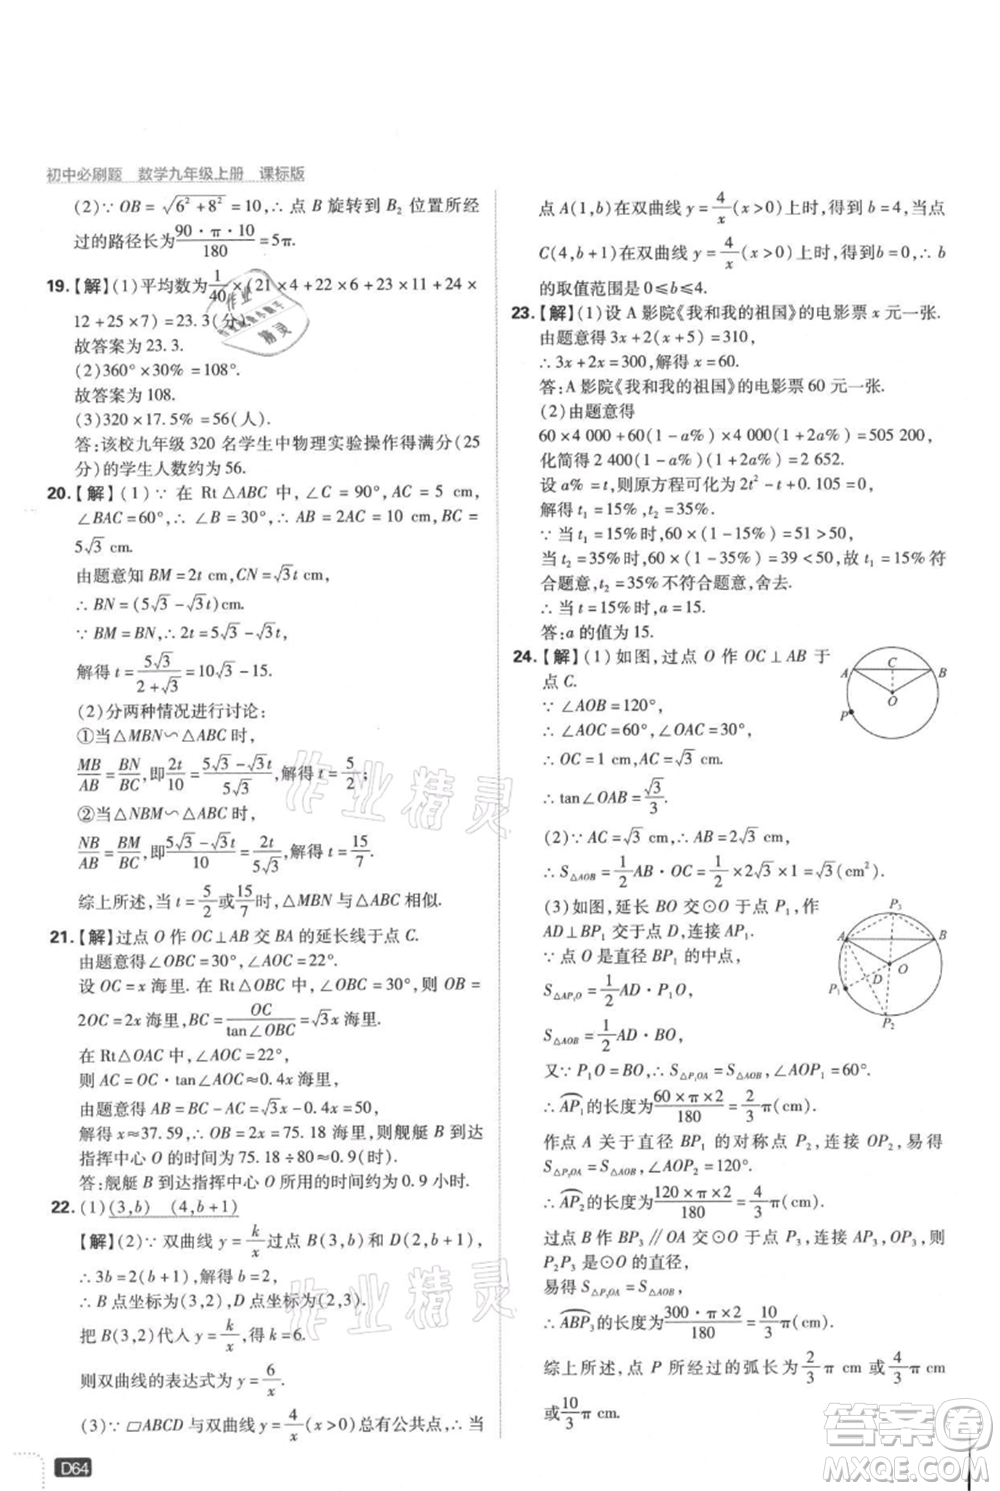 初中必刷题 数学九年级上册 课标版
(2)∵OB=√(6²+8²)=10,∴点 B 旋转到 B₂ 位置所经
过的路径长为 90·π·10/180=5π.
19.【解】(1)平均数为 1/40×(21×4+22×6+23×11+24×
12+25×7)=23.3(分).
故答案为 23.3.
(2)360°×30%=108°.
故答案为 108.
(3)320×17.5%=56(人).
答:该校九年级 320 名学生中物理实验操作得满分(25
分)的学生人数约为 56.
20.【解】(1)∵在 Rt△ABC 中,∠C=90°,AC=5 cm,
∠BAC=60°,∴∠B=30°,∴AB=2AC=10 cm,BC=
5√3 cm.
由题意知 BM=2t cm,CN=√3t cm,
∴BN=(5√3-√3t)cm.
∵BM=BN,∴2t=5√3-√3t,
解得 t=5√3/(2+√3)=10√3-15.
(2)分两种情况进行讨论:
①当△MBN∽△ABC 时,
MB/AB=BN/BC,即 2t/10=(5√3-√3t)/5√3,解得 t=5/2;
②当△NBM∽△ABC 时,
NB/AB=BM/BC,即(5√3-√3t)/10=2t/5√3,解得 t=15/7.
综上所述,当 t=5/2 或 15/7 时,△MBN 与△ABC 相似.
21.【解】过点 O 作 OC⊥AB 交 BA 的延长线于点 C.
由题意得∠OBC=30°,∠AOC=22°.
设 OC=x 海里,在 Rt△OBC 中,∠OBC=30°,则 OB=
2OC=2x 海里,BC=OC/tan∠OBC=√3x 海里.
在 Rt△OAC 中,∠AOC=22°,
则 AC=OC·tan∠AOC≈0.40x 海里.
由题意得 BC-AC=√3x-0.40x=50,
解得 x≈37.59,∴OB=2x=75.18 海里,则舰艇 B 到达
指挥中心 O 的时间为 75.18÷80≈0.9(时).
答:舰艇 B 到达指挥中心 O 所用的时间约为 0.9 小时.
22.(1)(3,b) (4,b+1)
【解】(2)∵双曲线 y=k/x 过点 B(3,b)和 D(2,b+1),
∴3b=2(b+1),解得 b=2,
∴B 点坐标为(3,2),D 点坐标为(2,3).
把 B(3,2)代入 y=k/x,得 k=6.
则双曲线的表达式为 y=6/x.
(3)∵▱ABCD 与双曲线 y=4/x(x>0)总有公共点,∴当
D64
点 A(1,b)在双曲线 y=4/x(x>0)上时,得到 b=4,当点
C(4,b+1)在双曲线 y=4/x(x>0)上时,得到 b=0,∴b
的取值范围是 0≤b≤4.
23.【解】(1)设 A 影院《我和我的祖国》的电影票 x 元一张.
由题意得 3x+2(x+5)=310,
∴3x+2x=300,解得 x=60.
答:A 影院《我和我的祖国》的电影票 60 元一张.
(2)由题意得
60×4 000+60(1-a%)×4 000(1+2a%)=505 200,
化简得 2 400(1-a%)(1+2a%)=2 652.
设 a%=t,则原方程可化为 2t²-t+0.105=0,
解得 t₁=15%,t₂=35%.
∵当 t₁=15%时,60×(1-15%)=51>50,
当 t₂=35%时,60×(1-35%)=39<50,故 t=15%符
合题意,t=35%不符合题意,舍去.
∴当 t=15%时,a=15.
答:a 的值为 15.
24.【解】(1)如图,过点 O 作 OC⊥AB 于
点 C.
∵∠AOB=120°,
∴∠AOC=60°,∠OAC=30°.
∵OC=1 cm,∴AC=√3 cm,
∴tan∠OAB=√3/3.
(2)∵AC=√3 cm,∴AB=2√3 cm,
∴S△AOB=1/2AB·OC=1/2×2√3×1=√3(cm²).
(3)如图,延长 BO 交⊙O 于点 P₁,作
AD⊥BP₁ 交于点 D,连接 AP₁.
∵点 O 是 BP₁ 的中点,
S△AP₁O=1/2AD·P₁O,
S△AOB=1/2AD·BO,
又∵P₁O=BO,∴S△P₁OA=S△AOB,∠AOP₁=60°.
∴AP₁的长度为 60×π×2/180=2/3π(cm).
作点 A 关于直径 BP₁ 的对称点 P₂,连接 OP₂,易得
S△P₂OA=S△AOB,∠AOP₂=120°.
∴AP₂的长度为 120×π×2/180=4/3π(cm).
过点 B 作 BP₃∥OA 交⊙O 于点 P₃,连接 AP₃,OP₃,则
P₂P₃ 是⊙O 的直径,
易得 S△P₃OA=S△AOB,
∴ABP₃的长度为 300·π×2/180=10/3π(cm).
综上所述,点 P 所经过的弧长为 2/3π cm 或 4/3π cm 或
10/3π cm.
A C B O P
P₃ A B O D P₁ P₂
作业精灵
作业精灵
答案圈
MXQE.COM